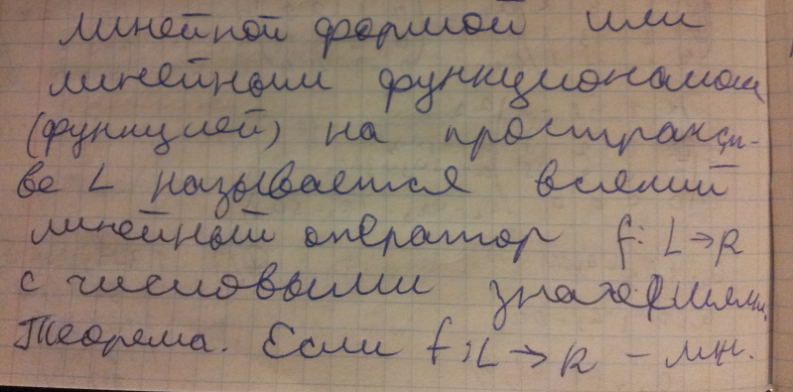 линейной формой или
линейным функционалом
(функцией) на пространст-
ве L называется всякий
линейный оператор f: L→R
с числовыми значениями.
Теорема. Если f: L→R – лин.